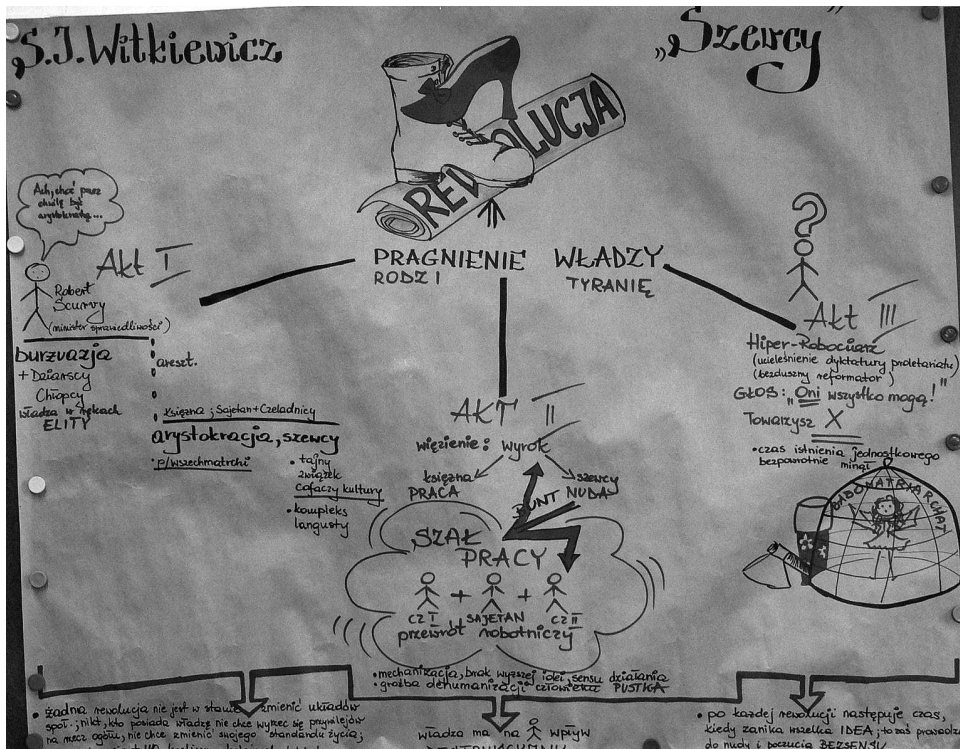 „S.I. Witkiewicz
„Szewcy”
REWOLUCJA
PRAGNIENIE WŁADZY
RODZI TYRANIĘ
Ach, choć przez
chwilę być
arystokratą...
Akt I
Robert
Scurvy
(minister sprawiedliwości)
burżuazja
+ Dziarscy
Chłopcy
władza w rękach
ELITY
areszt.
księżna; Sajetan + Czeladnicy
arystokracja, szewcy
• p/wszechmatrchi
• tajny
związek
cofaczy kultury
• kompleks
langusty
AKT II
więzienie: wyrok
księżna szewcy
PRACA NUDA
BUNT
SZAŁ
PRACY
+ +
CZ I SAJETAN CZ II
przewrót robotniczy
• mechanizacja, brak wyższej idei, sensu działania
• groźba dehumanizacji człowieka PUSTKA
?
Akt III
Hiper-Robociarz
(ucieleśnienie dyktatury proletariatu)
(bezduszny reformator)
GŁOS: „Oni wszystko mogą!”
Towarzysz X
• czas istnienia jednostkowego
bezpowrotnie minął
BABOMATRIARCHAT
• żadna rewolucja nie jest w stanie zmienić układów
społ.; nikt, kto posiada władzę nie chce wyrzec się przywilejów
na rzecz ogółu, nie chce zmienić swojego "standardu życia;
władza ma na wpływ
• po każdej rewolucji następuje czas,
kiedy zanika wszelka IDEA; to zaś prowadzi
do nudy i poczucia BEZSENSU